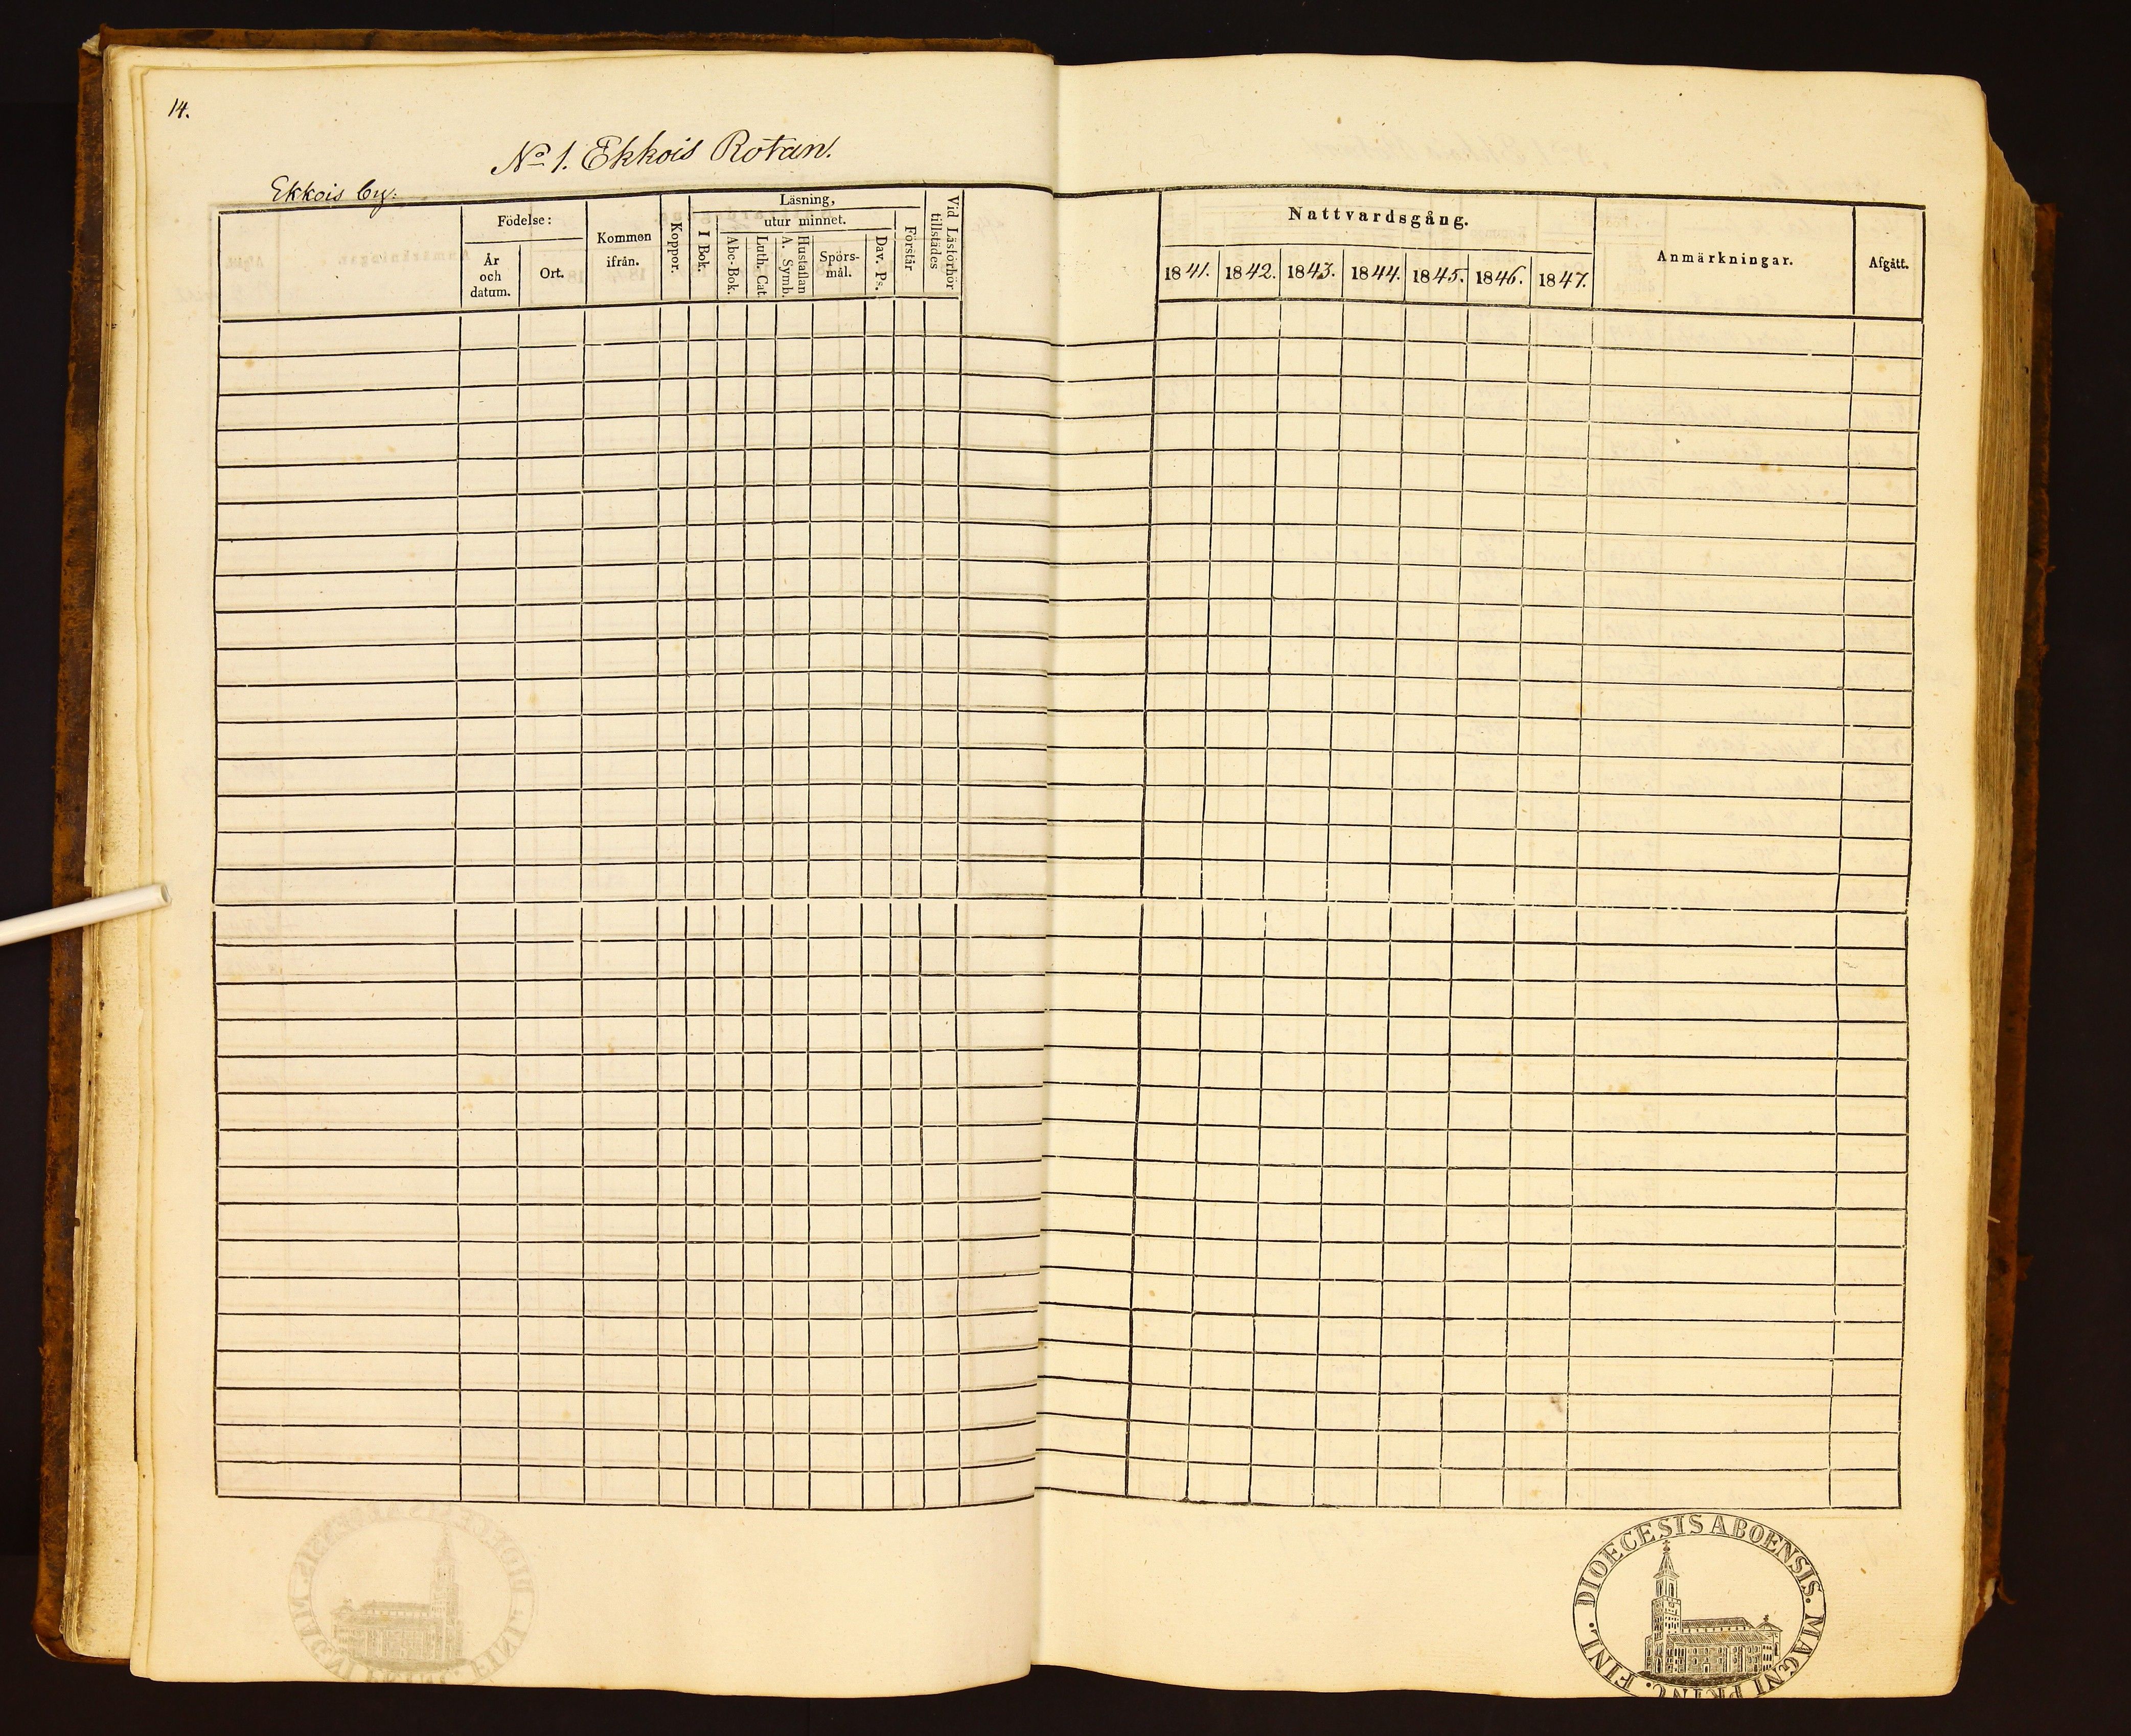 14.
No 1. Ekkois Rotan.
Ekkois by:
Födelse:
År och datum.
Ort.
Kommen ifrån.
Koppor.
Läsning,
I Bok.
utur minnet.
Abc-Bok.
Luth. Cat.
A. Symb.
Hustaflan
Spörs-mål.
Dav. Ps.
Förstår
Vid Läsförhör tillstädes
Nattvardsgång.
1841. 1842. 1843. 1844. 1845. 1846. 1847.
Anmärkningar.
Afgått.
DIOECESIS ABOENSIS. MAGNI PRINC. FINL.